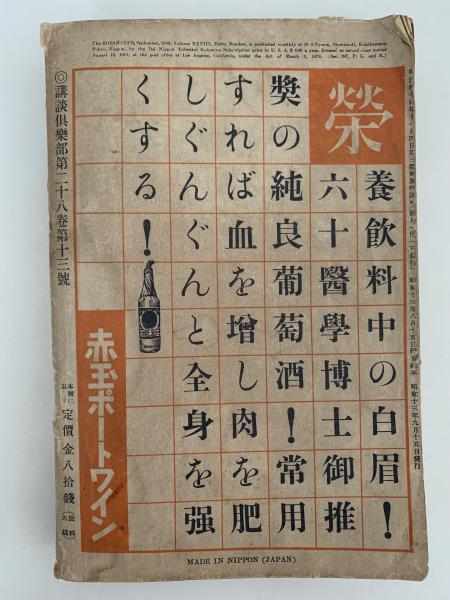 The KODAN CLUB, September, 1938, Volume XXVIII, Extra Number, is published monthly at 19 3-Tyome, Otowamati, Koisikawaku,
Tokyo, Nippon, by the Dai Nippon Yubenkai Kodansya. Subscription price in U. S. A. $ 6.00 a year. Entered as second class matter
August 18, 1911, at the post office at Los Angeles, California, under the Act of March 3, 1879. (Sec. 397, P. L. and R.)
昭和十三年八月十五日印刷納本 昭和十三年九月十五日發行
榮養飲料中の白眉!
六十醫學博士御推
奬の純良葡萄酒!常用
すれば血を增し肉を肥
しぐんぐんと全身を强
くする!
赤玉ポートワイン
◎講談俱樂部第二十八卷第十三號
本號に限り 定價金八拾錢
MADE IN NIPPON (JAPAN)